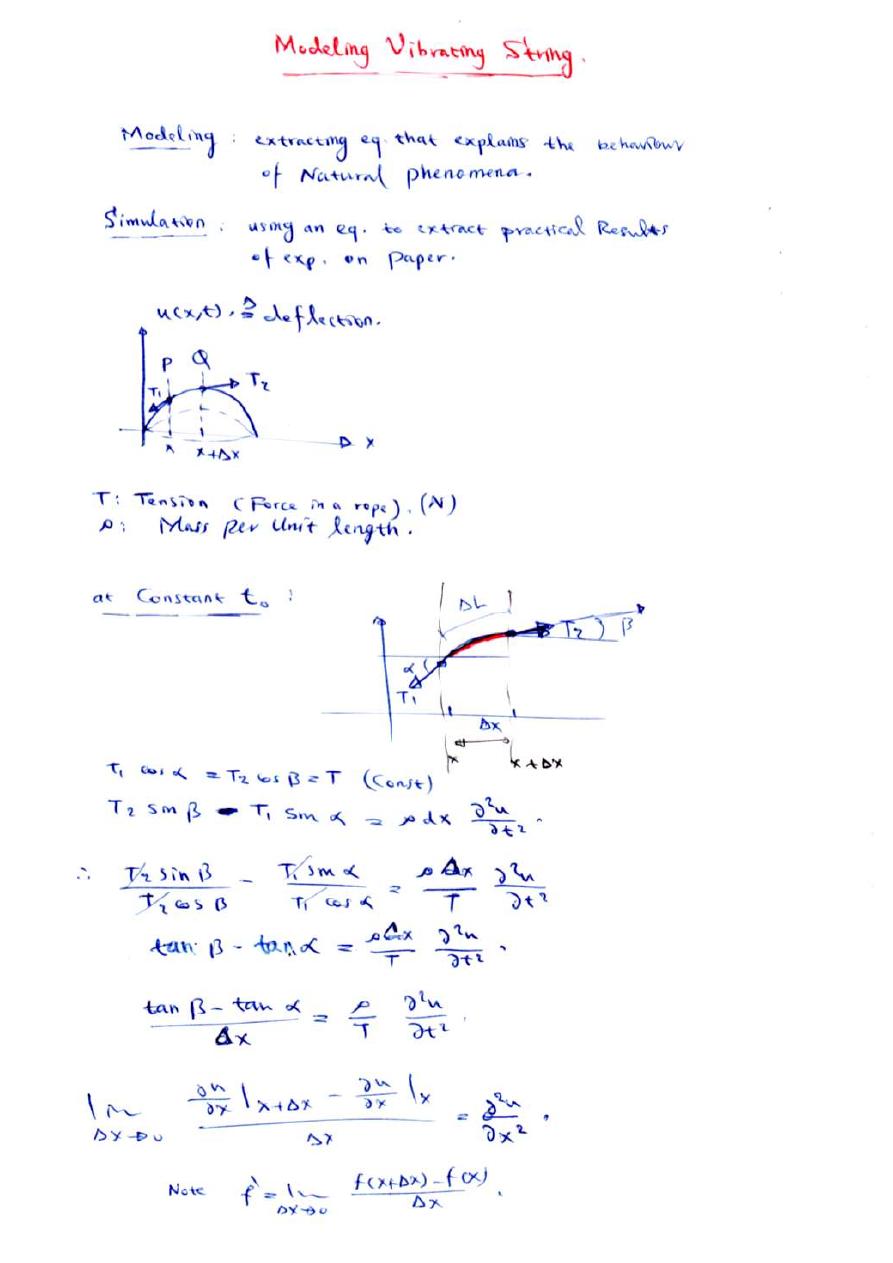 Modeling Vibrating String.
Modeling : extracting eq. that explains the behaviour
of Natural phenomena.
Simulation : using an eq. to extract practical Results
of exp. on paper.
u(x,t), ≜ deflection.
P Q
T₁ T₂
x x+Δx x
T : Tension (Force in a rope). (N)
ρ : Mass per Unit length.
at Constant t₀ :
ΔL
α T₂ β
T₁
Δx
x x+Δx
T₁ cos α = T₂ cos β = T (Const)
T₂ sin β - T₁ sin α = ρ dx ∂²u/∂t² .
∴ T₂ sin β / T₂ cos β - T₁ sin α / T₁ cos α = ρ Δx / T ∂²u/∂t²
tan β - tan α = ρ Δx / T ∂²u/∂t² .
(tan β - tan α) / Δx = ρ / T ∂²u/∂t² .
lim Δx→0 (∂u/∂x |x+Δx - ∂u/∂x |x) / Δx = ∂²u/∂x² .
Note f' = lim Δx→0 (f(x+Δx) - f(x)) / Δx .